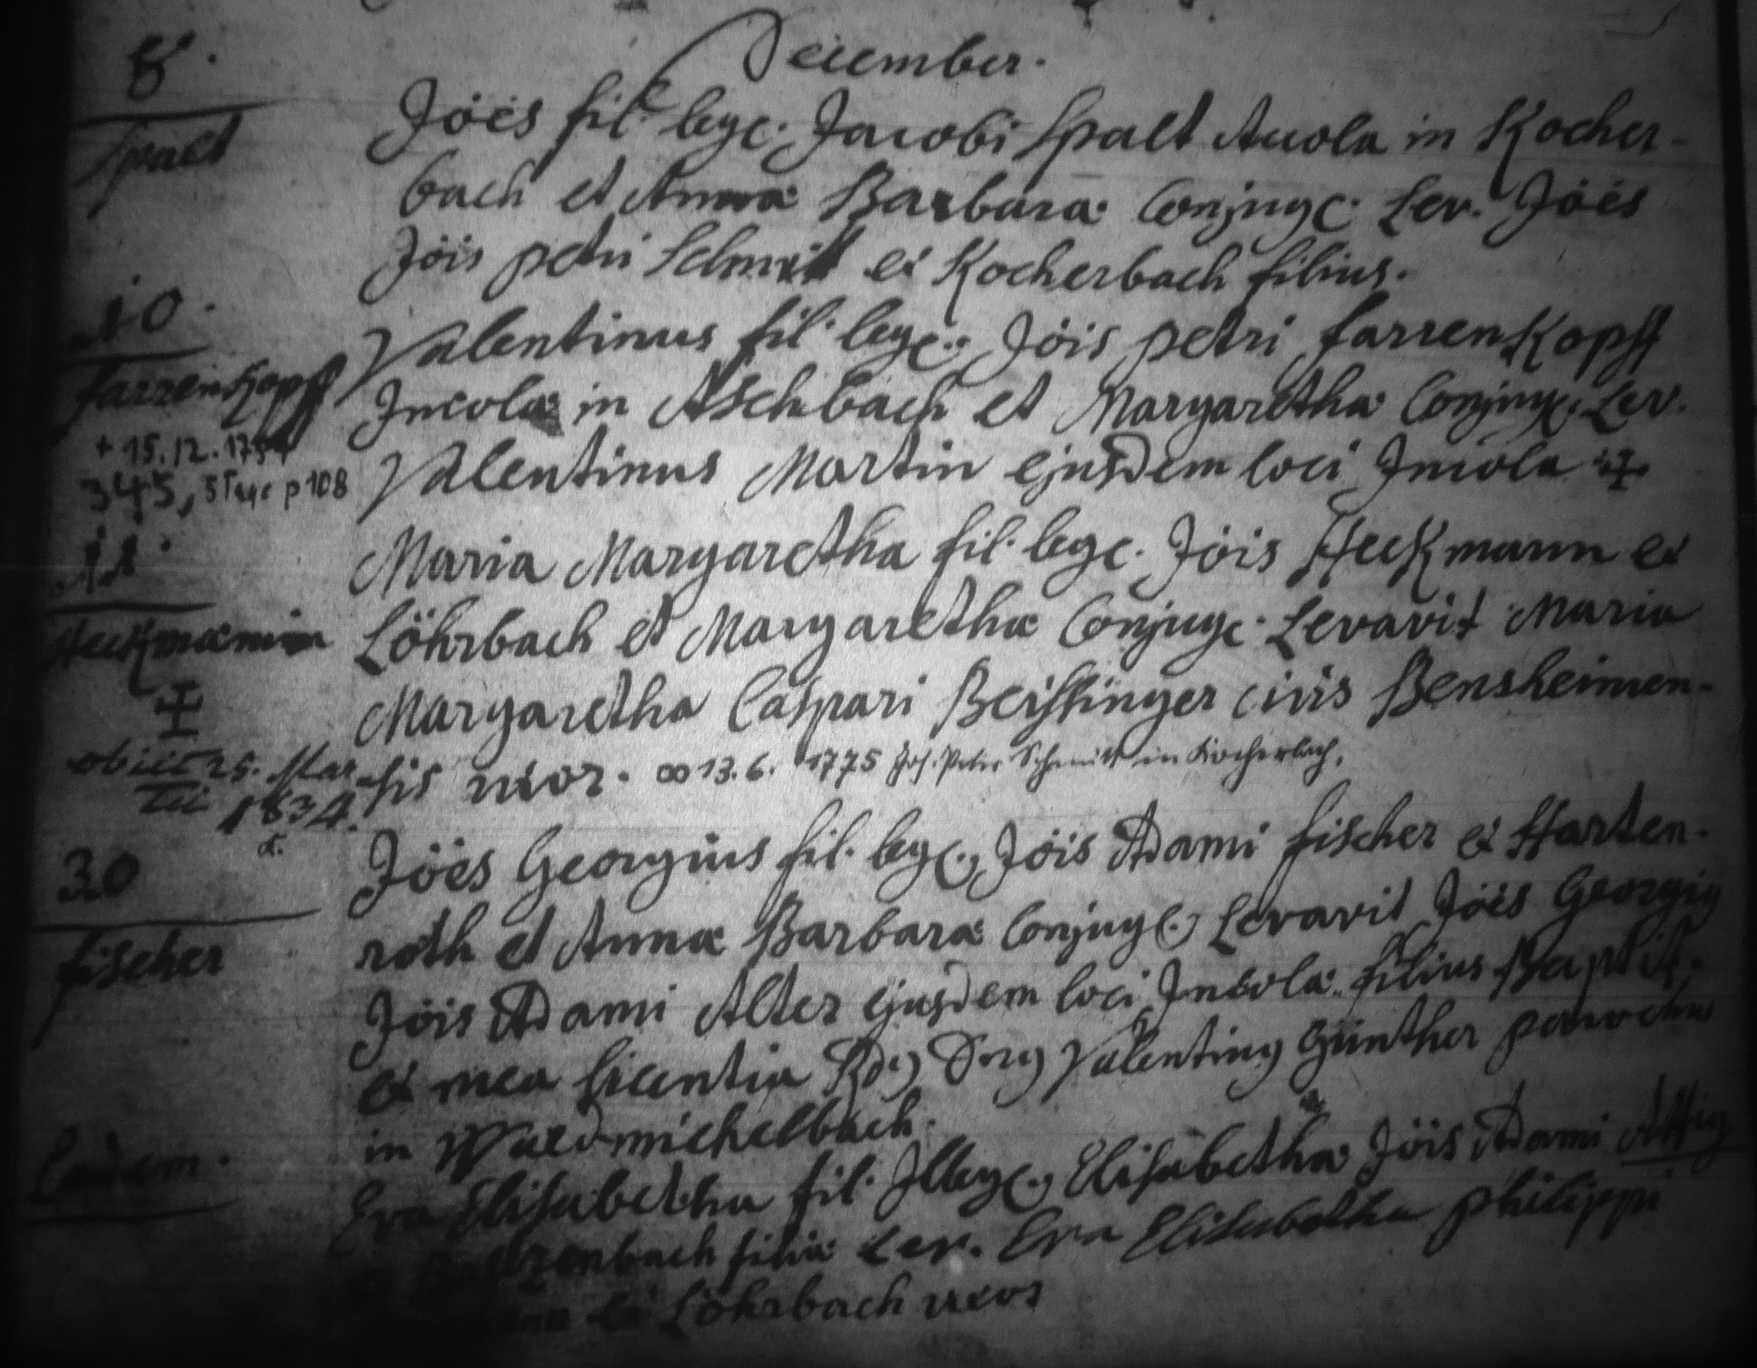 December.
8.
Spalt
Jöes fil. leg. Jacobi Spalt Accola in Kocher-
bach et Annæ Barbaræ Conjug. Lev. Jöes
Jöis petri Schmitt ex Kocherbach filius.
10.
farrenkopff
+ 15.12.1754
345, 5 Tage p 108
Valentinus fil. leg. Jöis petri farrenkopff
Incolæ in Aschbach et Margarethæ Conjug. Lev.
Valentinus Martin ejusdem loci Incola ‡
11.
Heckmannin
‡
obiit 25. Mar
tii 1834.
Maria Margaretha fil. leg. Jöis Heckmann ex
Löhrbach et Margarethæ Conjug. Levavit Maria
Margaretha Caspari Beissinger civis Bensheimen-
sis uxor. ∞ 13.6.1775 Joh. Peter Schmitt in Kocherbach.
30
fischer
Jöes Georgius fil. leg. Jöis Adami fischer ex Harten-
roth et Annæ Barbaræ Conjug. Levavit Jöes Georgig
Jöis Adami Alter ejusdem loci Incolæ filius Baptis.
ex mea licentia Rdg Dng Valenting Günther parochus
in Waldmichelbach.
Eadem.
Eva Elisabetha fil. Illeg. Elisabethæ Jöis Adami
filiæ Lev. Eva Elisabetha philippi
ex Löhrbach uxor